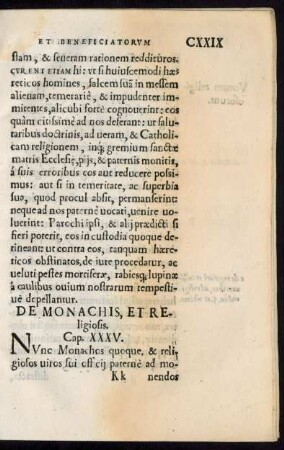 ET BENEFICIATORVM CXXIX
siam, & seueram rationem reddituros.
CVRENT ETIAM hi: ut si huiuscemodi hæ-
reticos homines, falcem suã in messem
alienam, temerariè, & impudenter im-
mittentes, alicubi fortè cognouerint: eos
quàm citissimè ad nos deferant: ut salu-
taribus doctrinis, ad ueram, & Catholi-
cam religionem, inq; gremium sanctæ
matris Ecclesiæ, pijs, & paternis monitis,
à suis erroribus eos aut reducere possi-
mus: aut si in temeritate, ac superbia
sua, quod procul absit, permanserint:
neque ad nos paternè uocati, uenire uo-
luerint: Parochi ipsi, & alij prædicti si
fieri poterit, eos in custodia quoque de-
tineant: ut contra eos, tanquam hære-
ticos obstinatos, de iure procedatur, ac
ueluti pestes mortiferæ, rabiesq; lupinæ
à caulibus ouium nostrarum tempesti-
uè depellantur.
DE MONACHIS, ET RE-
ligiosis.
Cap. XXXV.
NVnc Monachos quoque, & reli-
giosos uiros sui officij paternè ad mo-
Kk nendos